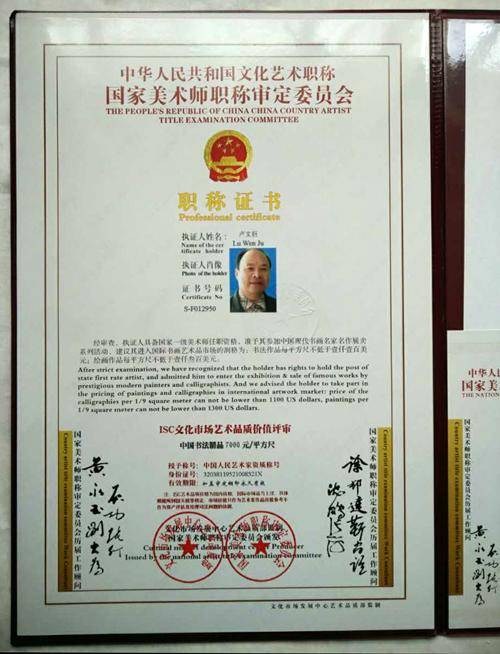 中华人民共和国文化艺术职称
国家美术师职称审定委员会
THE PEOPLE'S REPUBLIC OF CHINA CHINA COUNTRY ARTIST
TITLE EXAMINATION COMMITTEE
职称证书
Professional certificate
执证人姓名:
Name of the cer
tificate holder
卢文
Lu Wen Ju
执证人肖像
Photo of the holder
证书号码
Certificate No
S-F012950
经审查，执证人具备国家一级美术师任职资格，准予其参加中国现代书画名家名作展卖
系列活动，建议其进入国际书画艺术品市场的润格为：书法作品每平方尺不低于壹仟壹佰美
元；绘画作品每平方尺不低于壹仟叁百美元。
After strict examination, we have recognized that the holder has rights to hold the post of
state first rate artist, and admitted him to enter the exhibition & sale of famous works by
prestigious modern painters and calligraphists. And we advised the holder to take part in
the pricing of paintings and calligraphies in international artwork market: price of the
calligraphies per 1/9 square meter can not be lower than 1100 US dollars, paintings per
1/9 square meter can not be lower than 1300 US dollars.
ISC文化市场艺术品质价值评审
中国书法精品 7000 元/平方尺
授予称号: 中国人民艺术家资质称号
身份证号: 32038319521008521X
有效期限:
文化市场发展中心艺术品质部监制
国家美术师职称审定委员会颁发
Cultural market development center Producer
Issued by the national artists examination committee
国家美术师职称审定委员会历届工作顾问
Country artist title examination committee Work Consultant
国家美术师职称审定委员会历届工作顾问
Country artist title examination committee Work Consultant
文化市场发展中心艺术品质部监制